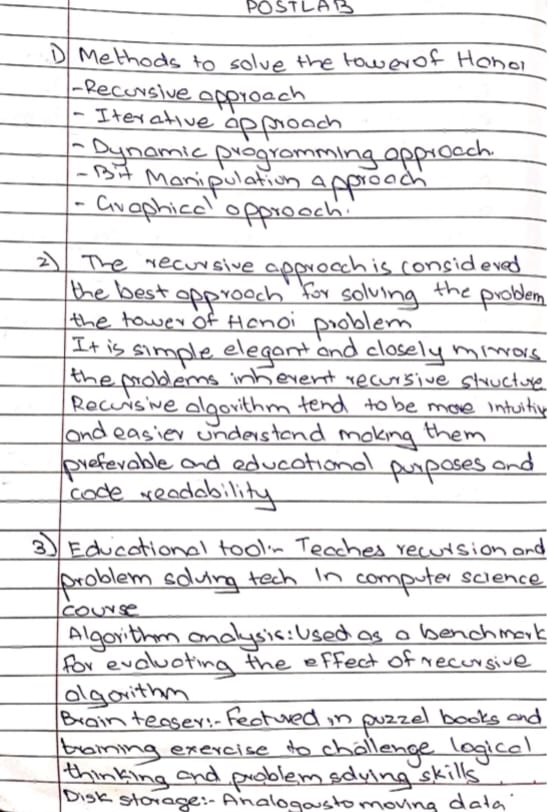 POSTLAB
1) Methods to solve the tower of Hanoi
-Recursive approach
- Iterative approach
- Dynamic programming approach.
- Bit Manipulation approach
- Graphical approach.
2) The recursive approach is considered
the best approach for solving the problem
the tower of Hanoi problem
It is simple elegant and closely mirrors
the problems inherent recursive structure
Recursive algorithm tend to be more intuitiv
and easier understand making them
preferable and educational purposes and
code readability
3) Educational tool:- Teaches recursion and
problem solving tech In computer science
course
Algorithm analysis: Used as a benchmark
for evaluating the effect of recursive
algorithm
Brain teaser:- Featured in puzzel books and
training exercise to challenge logical
thinking and problem solving skills
Disk storage:- Analogous to moving data